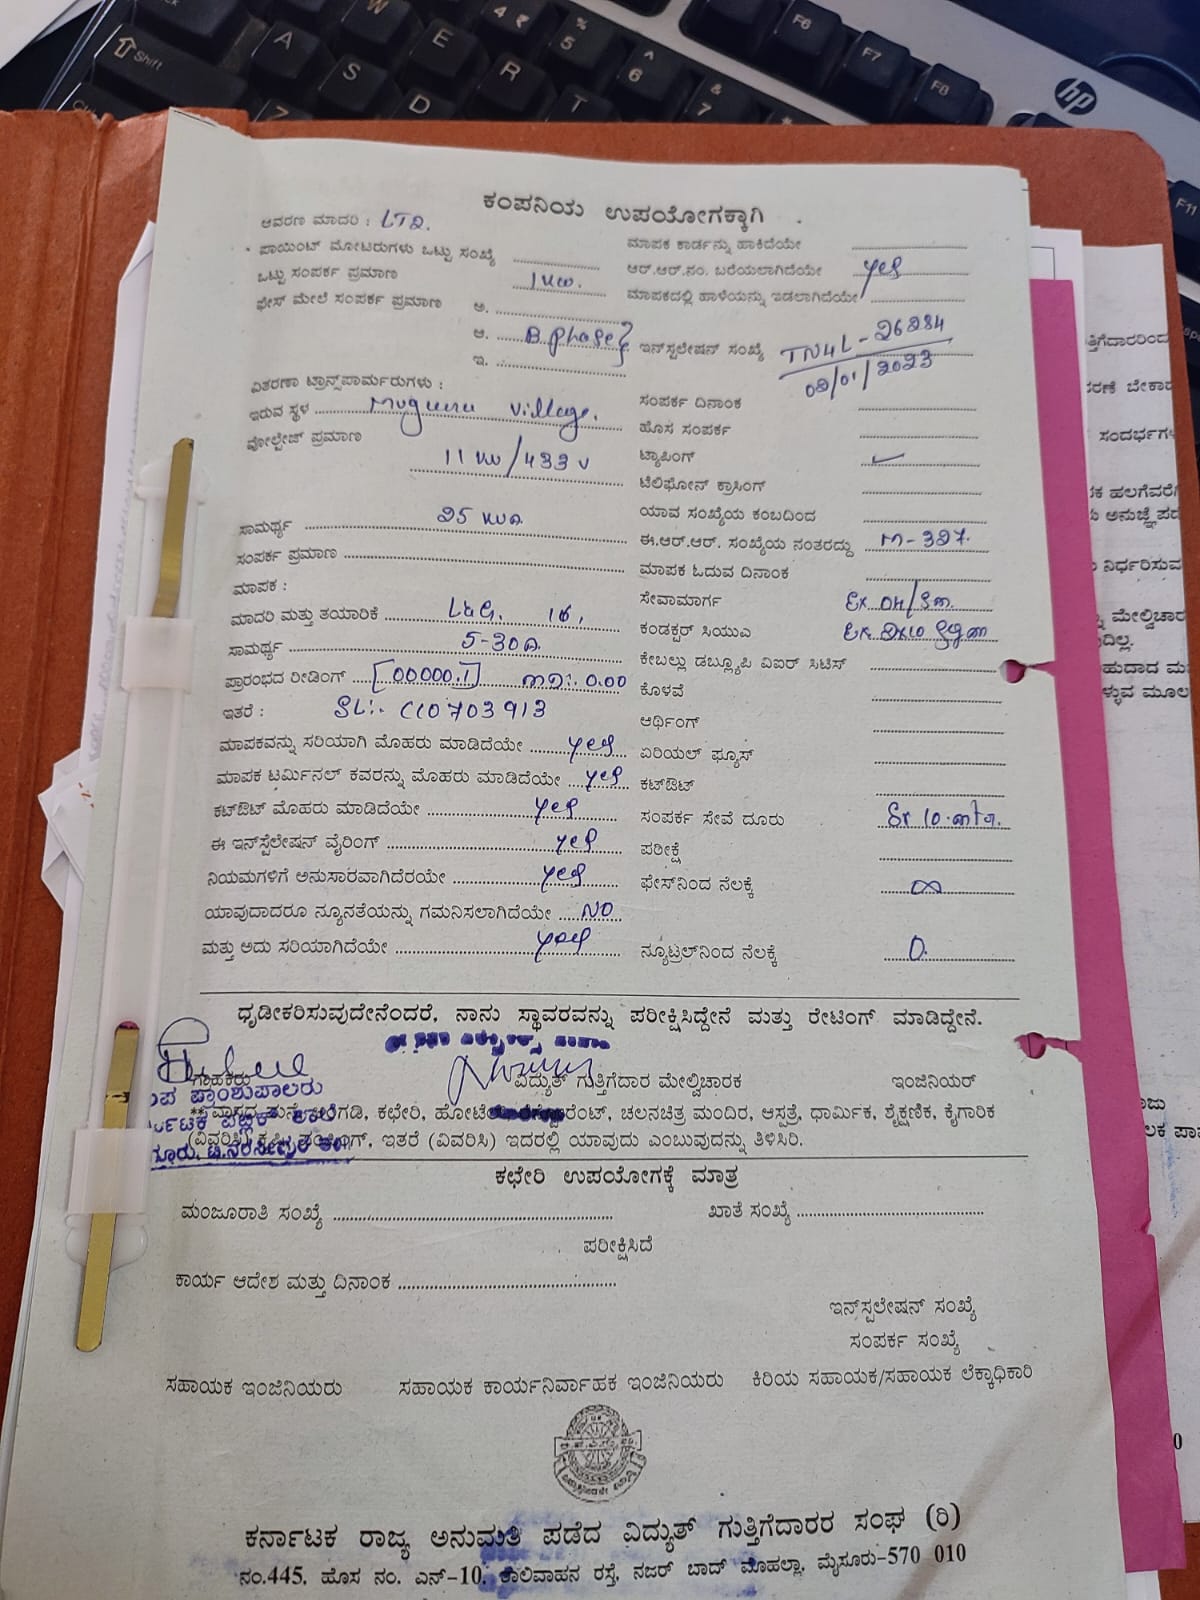 ಕಂಪನಿಯ ಉಪಯೋಗಕ್ಕಾಗಿ .
ಆವರಣ ಮಾದರಿ : LT2.
ಪಾಯಿಂಟ್ ಮೋಟರುಗಳು ಒಟ್ಟು ಸಂಖ್ಯೆ
ಒಟ್ಟು ಸಂಪರ್ಕ ಪ್ರಮಾಣ 1KW.
ಫೇಸ್ ಮೇಲೆ ಸಂಪರ್ಕ ಪ್ರಮಾಣ ಅ.
ಆ. B.Phase
ಇ.
ವಿತರಣಾ ಟ್ರಾನ್ಸ್‌ಫಾರ್ಮರುಗಳು :
ಇರುವ ಸ್ಥಳ Muguru Village.
ವೋಲ್ಟೇಜ್ ಪ್ರಮಾಣ 11 KV/433 V
ಸಾಮರ್ಥ್ಯ 25 KVA
ಸಂಪರ್ಕ ಪ್ರಮಾಣ
ಮಾಪಕ :
ಮಾದರಿ ಮತ್ತು ತಯಾರಿಕೆ L&G.
ಸಾಮರ್ಥ್ಯ 5-30A.
ಪ್ರಾರಂಭದ ರೀಡಿಂಗ್ [00000.1] MD:. 0.00
ಇತರೆ : SL:.
ಮಾಪಕವನ್ನು ಸರಿಯಾಗಿ ಮೊಹರು ಮಾಡಿದೆಯೇ yes
ಮಾಪಕ ಟರ್ಮಿನಲ್ ಕವರನ್ನು ಮೊಹರು ಮಾಡಿದೆಯೇ yes
ಕಟ್‌ಔಟ್ ಮೊಹರು ಮಾಡಿದೆಯೇ yes
ಈ ಇನ್‌ಸ್ಟೆಲೇಷನ್ ವೈರಿಂಗ್ yes
ನಿಯಮಗಳಿಗೆ ಅನುಸಾರವಾಗಿದೆರಯೇ yes
ಯಾವುದಾದರೂ ನ್ಯೂನತೆಯನ್ನು ಗಮನಿಸಲಾಗಿದೆಯೇ NO
ಮತ್ತು ಅದು ಸರಿಯಾಗಿದೆಯೇ yes
ಮಾಪಕ ಕಾರ್ಡನ್ನು ಹಾಕಿದೆಯೇ
ಆರ್.ಆರ್.ನಂ. ಬರೆಯಲಾಗಿದೆಯೇ yes
ಮಾಪಕದಲ್ಲಿ ಹಾಳೆಯನ್ನು ಇಡಲಾಗಿದೆಯೇ
ಇನ್‌ಸ್ಟಲೇಷನ್ ಸಂಖ್ಯೆ TN4L-26284
02/01/2023
ಸಂಪರ್ಕ ದಿನಾಂಕ
ಹೊಸ ಸಂಪರ್ಕ
ಟ್ಯಾಪಿಂಗ್
ಟೆಲಿಫೋನ್ ಕ್ರಾಸಿಂಗ್
ಯಾವ ಸಂಖ್ಯೆಯ ಕಂಬದಿಂದ
ಈ.ಆರ್.ಆರ್. ಸಂಖ್ಯೆಯ ನಂತರದ್ದು M-327.
ಮಾಪಕ ಓದುವ ದಿನಾಂಕ
ಸೇವಾಮಾರ್ಗ Ex OH/
ಕಂಡಕ್ಟರ್ ಸಿಯುಎ Ex 2x10
ಕೇಬಲ್ಲು ಡಬ್ಲ್ಯೂಪಿ ವಿಐರ್ ಸಿಟಿಸ್
ಕೊಳವೆ
ಆರ್ಥಿಂಗ್
ಏರಿಯಲ್ ಫ್ಯೂಸ್
ಕಟ್‌ಔಟ್
ಸಂಪರ್ಕ ಸೇವೆ ದೂರು
ಪರೀಕ್ಷೆ
ಫೇಸ್‌ನಿಂದ ನೆಲಕ್ಕೆ ∞
ನ್ಯೂಟ್ರಲ್‌ನಿಂದ ನೆಲಕ್ಕೆ 0.
ಧೃಡೀಕರಿಸುವುದೇನೆಂದರೆ, ನಾನು ಸ್ಥಾವರವನ್ನು ಪರೀಕ್ಷಿಸಿದ್ದೇನೆ ಮತ್ತು ರೇಟಿಂಗ್ ಮಾಡಿದ್ದೇನೆ.
ಗ್ರಾಹಕರು ವಿದ್ಯುತ್ ಗುತ್ತಿಗೆದಾರ ಮೇಲ್ವಿಚಾರಕ ಇಂಜಿನಿಯರ್
ಉಪ ಪ್ರಾಂಶುಪಾಲರು
ಕರ್ನಾಟಕ ಪಬ್ಲಿಕ್ ಶಾಲೆ
ಕಛೇರಿ, ಚಲನಚಿತ್ರ ಮಂದಿರ, ಆಸ್ಪತ್ರೆ, ಧಾರ್ಮಿಕ, ಶೈಕ್ಷಣಿಕ, ಕೈಗಾರಿಕ
(ವಿವರಿಸಿ) ಇತರೆ (ವಿವರಿಸಿ) ಇದರಲ್ಲಿ ಯಾವುದು ಎಂಬುವುದನ್ನು ತಿಳಿಸಿರಿ.
ಕಛೇರಿ ಉಪಯೋಗಕ್ಕೆ ಮಾತ್ರ
ಮಂಜೂರಾತಿ ಸಂಖ್ಯೆ ಖಾತೆ ಸಂಖ್ಯೆ
ಪರೀಕ್ಷಿಸಿದೆ
ಕಾರ್ಯ ಆದೇಶ ಮತ್ತು ದಿನಾಂಕ
ಇನ್‌ಸ್ಟಲೇಷನ್ ಸಂಖ್ಯೆ
ಸಂಪರ್ಕ ಸಂಖ್ಯೆ
ಸಹಾಯಕ ಇಂಜಿನಿಯರು ಸಹಾಯಕ ಕಾರ್ಯನಿರ್ವಾಹಕ ಇಂಜಿನಿಯರು ಕಿರಿಯ ಸಹಾಯಕ/ಸಹಾಯಕ ಲೆಕ್ಕಾಧಿಕಾರಿ
ಕರ್ನಾಟಕ ರಾಜ್ಯ ಅನುಮತಿ ಪಡೆದ ವಿದ್ಯುತ್ ಗುತ್ತಿಗೆದಾರರ ಸಂಘ (ರಿ)
ನಂ.445, ಹೊಸ ನಂ. ಎನ್-10, ಶಾಲಿವಾಹನ ರಸ್ತೆ, ನಜರ್ ಬಾದ್ ಮೊಹಲ್ಲಾ, ಮೈಸೂರು-570 010